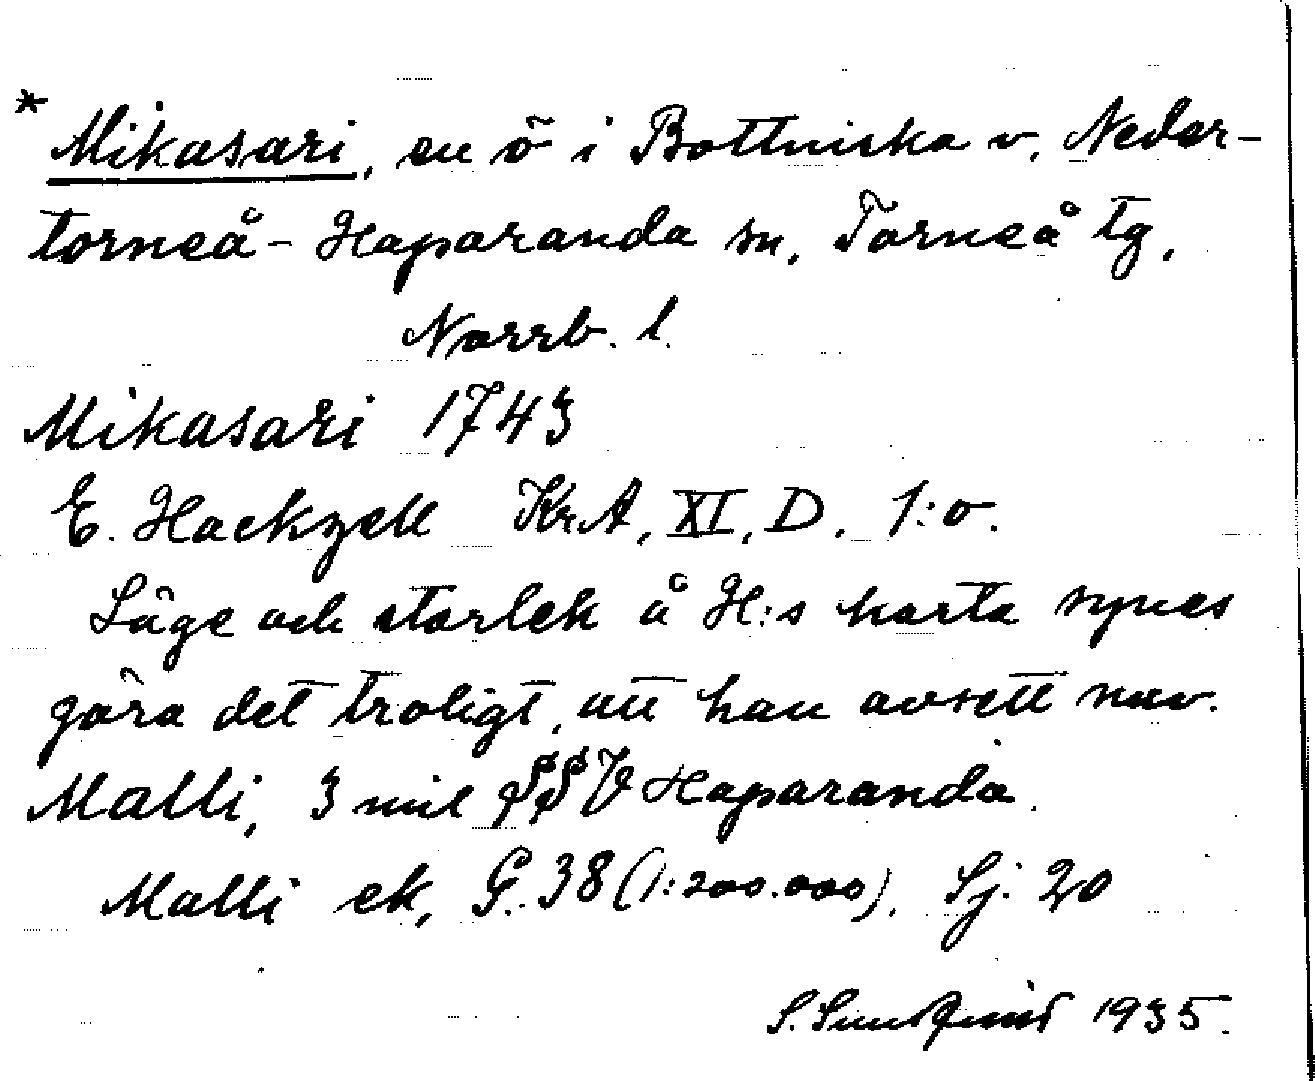 * Mikasari, en ö i Bottniska v, Neder-
torneå - Haparanda sn, Torneå tg,
Norrb. l.
Mikasari 1743
E. Hackzell KrA, XI, D, 1:o.
Läge och storlek å H:s karta synes
göra det troligt, att han avsett nuv.
Malli, 3 mil SSV Haparanda.
Malli ek, G. 38 (1:200.000), Sj. 20
S. Sundqvist 1935.